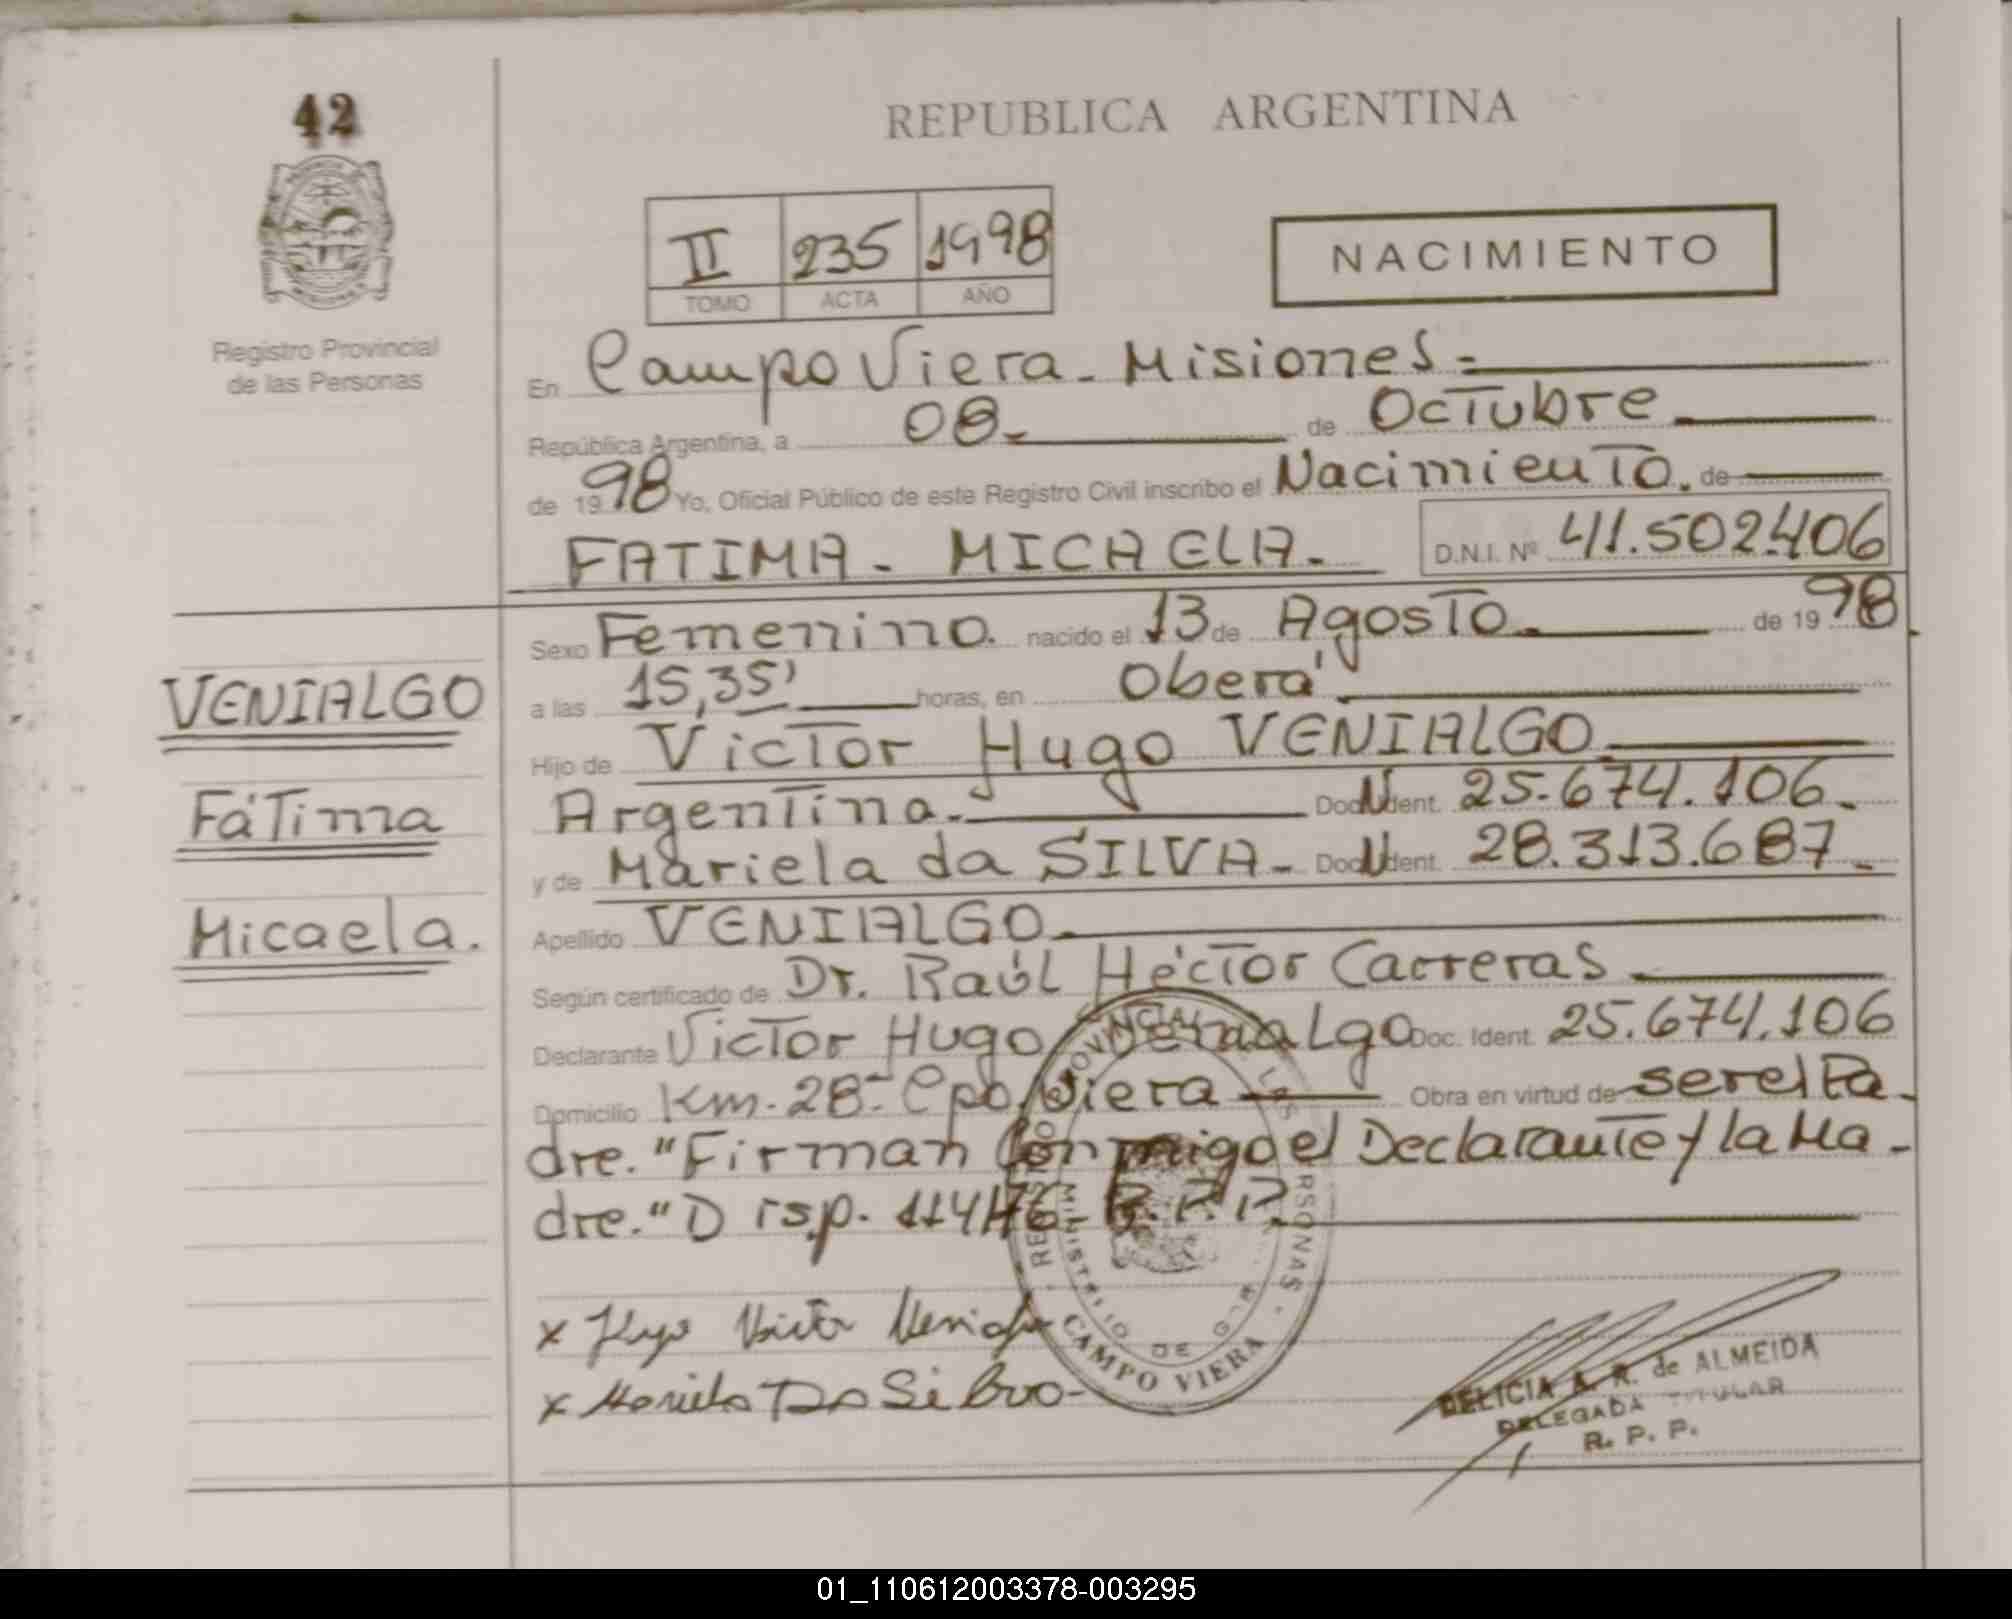 42
REPUBLICA ARGENTINA
II 235 1998
TOMO ACTA AÑO
NACIMIENTO
Registro Provincial
de las Personas
En Campo Viera - Misiones =
República Argentina, a 08- de Octubre
de 1998 Yo, Oficial Público de este Registro Civil inscribo el Nacimiento. de
FATIMA - MICAELA - D.N.I. Nº 41.502.406
Sexo Femenino. nacido el 13 de Agosto de 1998.
VENIALGO
a las 15,35' horas, en Oberá
Hijo de Victor Hugo VENIALGO
Fátima
Argentina. Doc. Ident. 25.674.106.
y de Mariela da SILVA - Doc. Ident. 28.313.687.
Micaela.
Apellido VENIALGO
Según certificado de Dr. Raúl Héctor Carreras
Declarante Victor Hugo Venialgo Doc. Ident. 25.674.106
Domicilio Km. 28- Cpo. Viera Obra en virtud de ser el Pa-
dre. "Firman Conmigo el Declarante y la Ma-
dre." Disp. 114/76- R.P.P.
REGISTRO PROVINCIAL DE LAS PERSONAS
MINISTERIO DE
CAMPO VIERA
x Hugo Victor
x Mariela Da Silva
DELICIA A. R. de ALMEIDA
DELEGADA TITULAR
R. P. P.
01_110612003378-003295